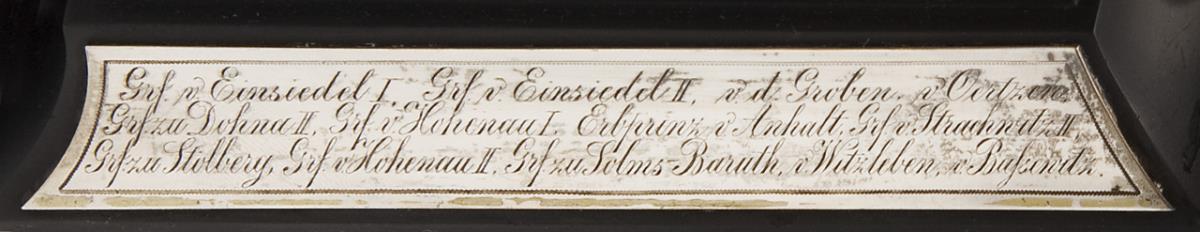 Grf. v. Einsiedel I, Grf. v. Einsiedel II, v. d. Gröben, v. Oertzen,
Grf. zu Dohna II, Grf. v. Hohenau I, Erbprinz v. Anhalt, Grf. v. Strachwitz II,
Grf. zu Stolberg, Grf. v. Hohenau II, Grf. zu Solms-Baruth, v. Witzleben, v. Baßewitz.